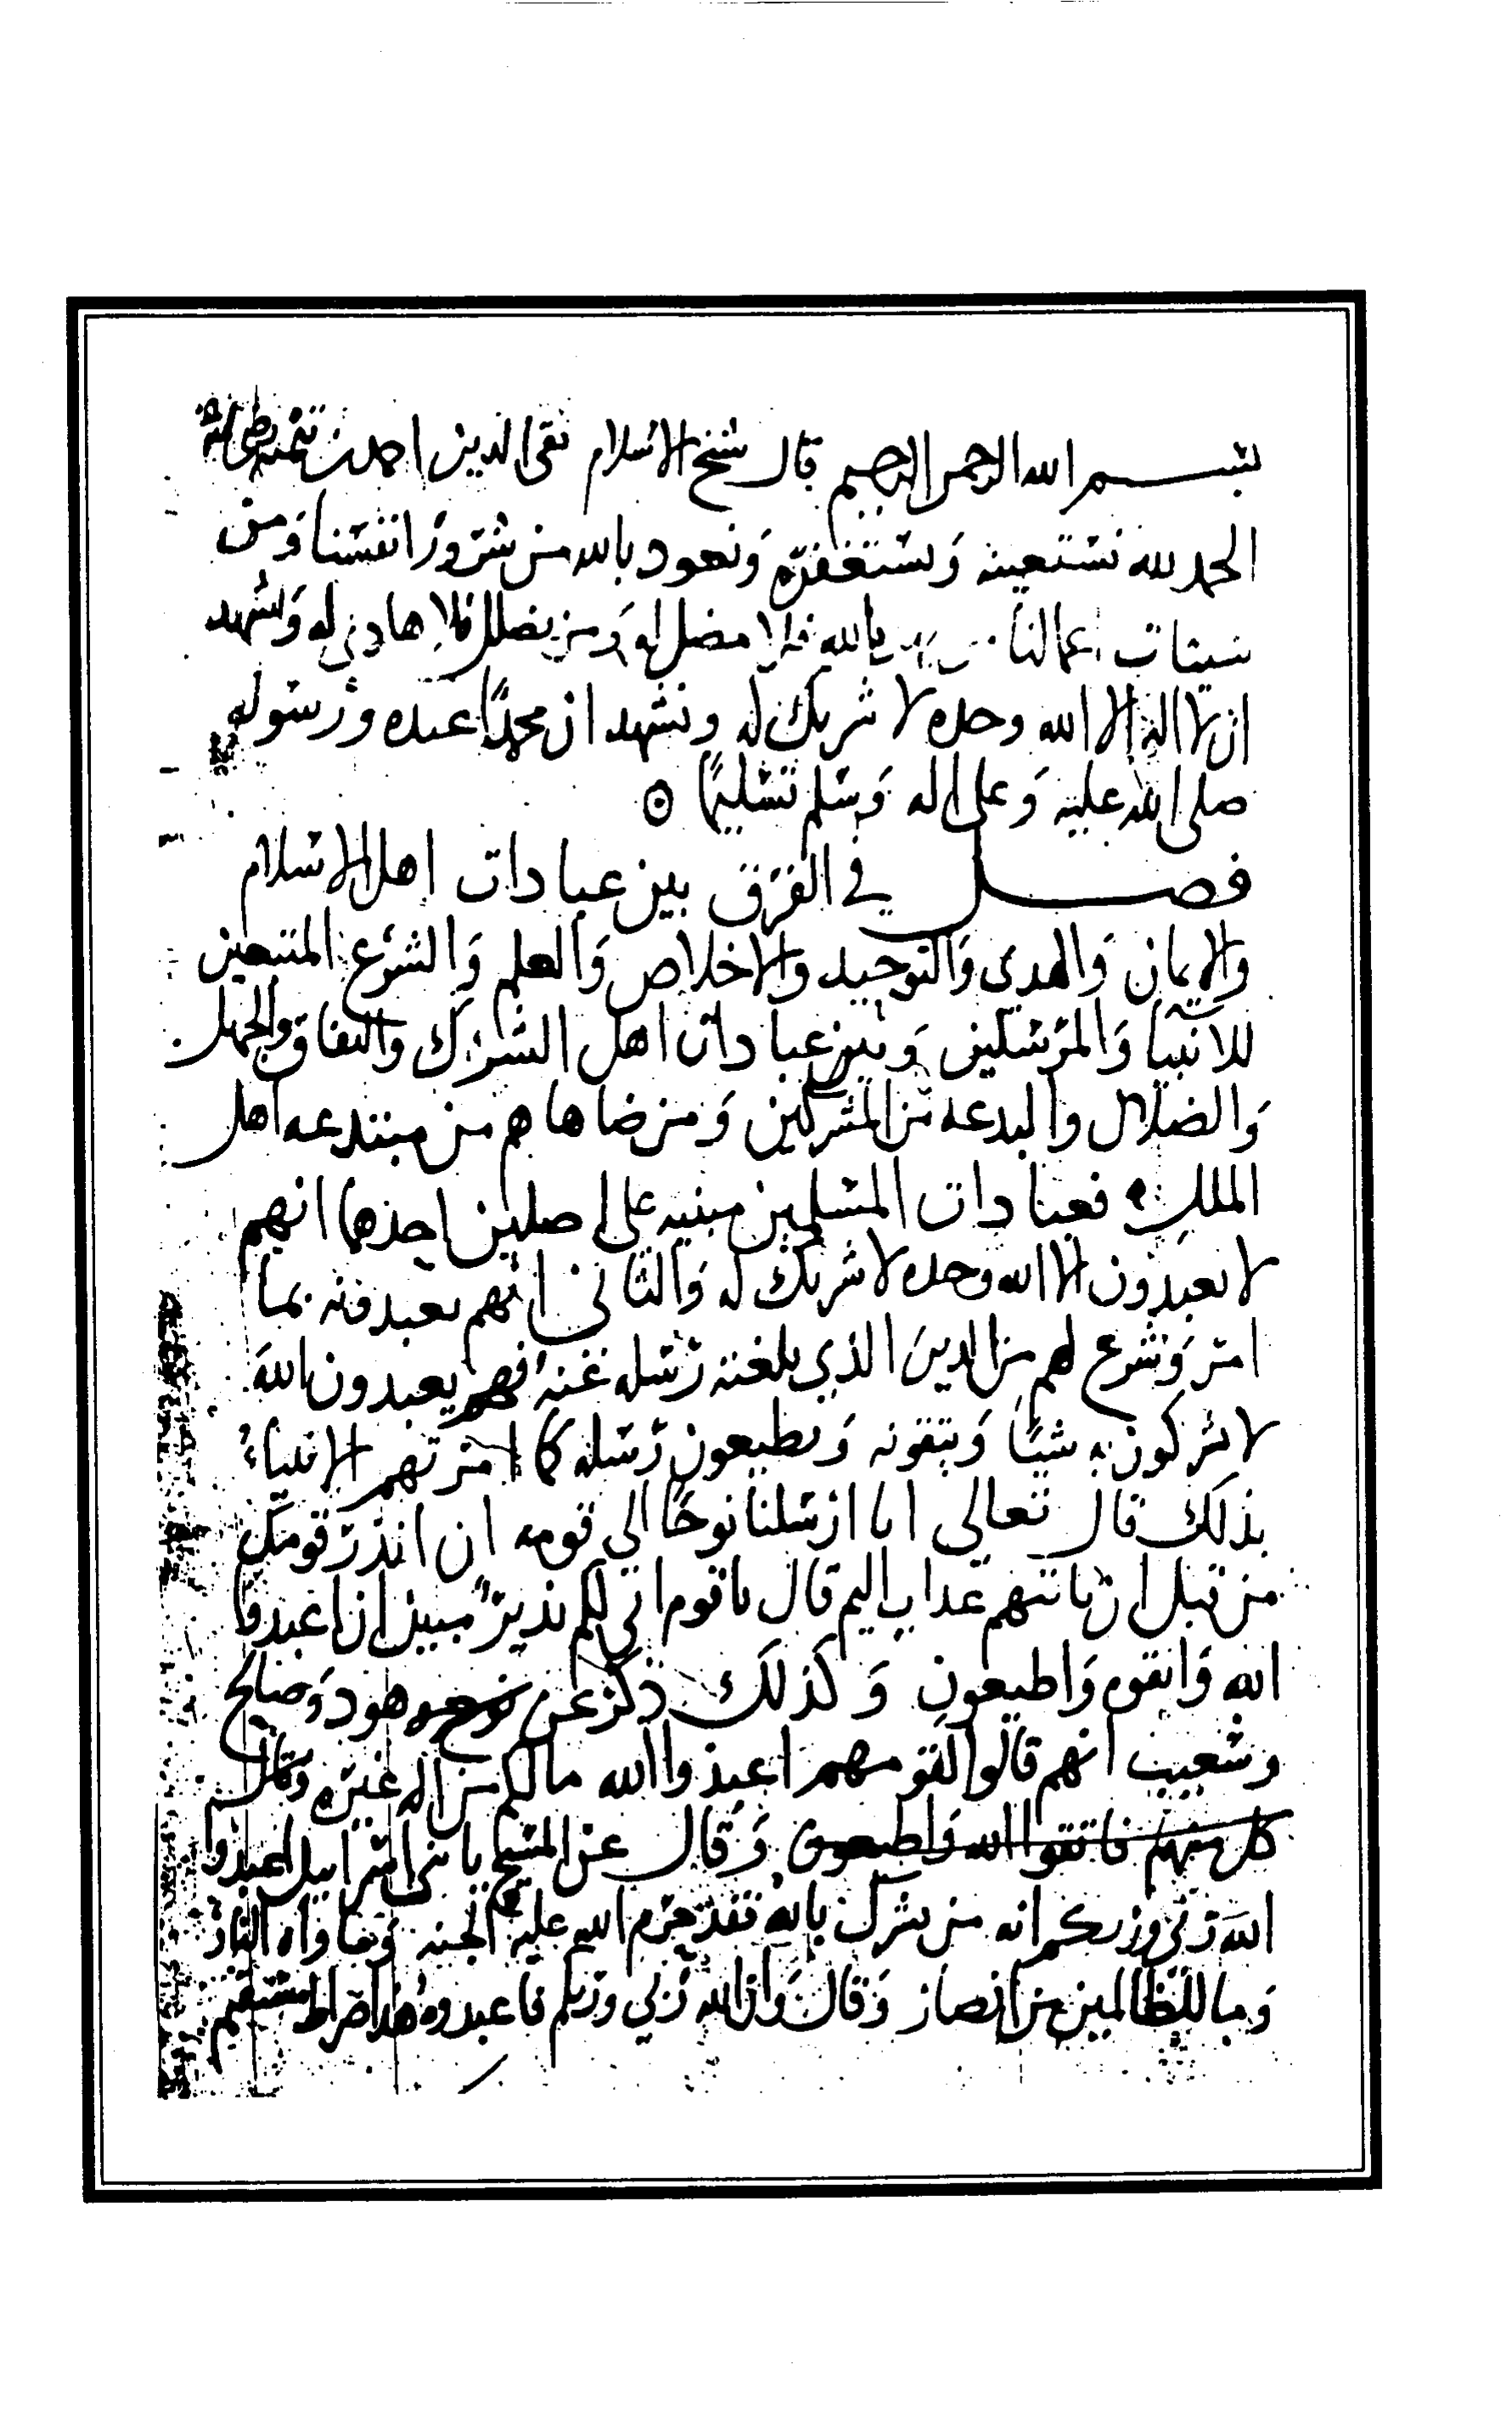 بسم الله الرحمن الرحيم قال شيخ الاسلام تقي الدين احمد بن تيميه
الحمد لله نستعينه وَنستغفره وَنعوذ بالله من شرور انفسنا وَمن
سيئات اعمالنا الله فلا مضل له وَمن يضلل فلا هادي له وَنشهد
ان لا اله الا الله وحده لا شريك له ونشهد ان محمدًا عبده ورسوله
صلى الله عليه وَعلى اله وَسلم تسليمًا
فصل في الفرق بين عبادات اهل الاسلام
والايمان وَالهدى وَالتوحيد والاخلاص وَالعلم وَالشرع المتبعين
للانبيا وَالمرسلين وَبين عبادات اهل الشرك والنفاق والجهل
وَالضلال والبدعه من المشركين وَمن ضاهاهم من مبتدعه اهل
الملل فعبادات المسلمين مبنيه على اصلين احدهما انهم
لا يعبدون الا الله وحده لا شريك له وَالثاني انهم يعبدونه بما
امر وَشرع لهم من الدين الذي بلغته رسله عنه فهم يعبدون الله
لا يشركون به شيئًا وَيتقونه وَيطيعون رسله كما امرتهم الانبياء
بذلك قال تعالى انا ارسلنا نوحًا الى قومه ان انذر قومك
من قبل ان ياتيهم عذاب اليم قال ياقوم اني لكم نذيرٌ مبين ان اعبدوا
الله وَاتقوه وَاطيعونِ وَكذلك ذكر عن نوح وهود وَصالح
وشعيب انهم قالوا لقومهم اعبدوا الله مالكم من اله غيره وقال
كل منهم فاتقوا الله وَاطيعون وَقال عن المسيح يا بني اسرائيل اعبدوا
اللهَ ربي وربكم انه من يشرك بالله فقد حرم الله عليه الجنه وَماواه النار
وَما للظالمين من انصار وَقال وَان الله ربي وربكم فاعبدوه هذا صراط مستقيم